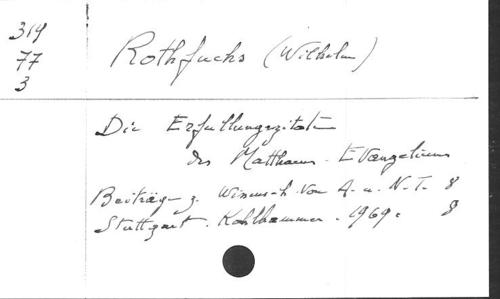 319
77
3
Rothfuchs (Wilhelm)
Die Erfüllungszitate
des Matthaeus-Evangeliums
Beiträge z. Wissensch. von A. u. N. T. 8
Stuttgart. Kohlhammer. 1969. 8